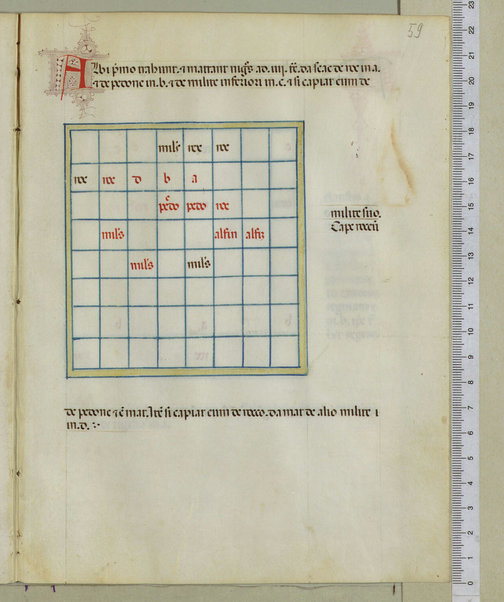 59
Albi pͥmo trahunt. ⁊ mattant nigͦs ad .iiij. fͤ. da scac de roc in a.
⁊ de pedone in .b. ⁊ de milite inferiori in .c. ⁊ si capiat eum de
mils roc roc
roc roc D b a
c
pedo pedo roc
mils alfin alfiz
mils mils
milite suo.
Cape
de pedone ⁊ē mat. Itē si capiat eum de rocco. da mat de alio milite i
in .D.